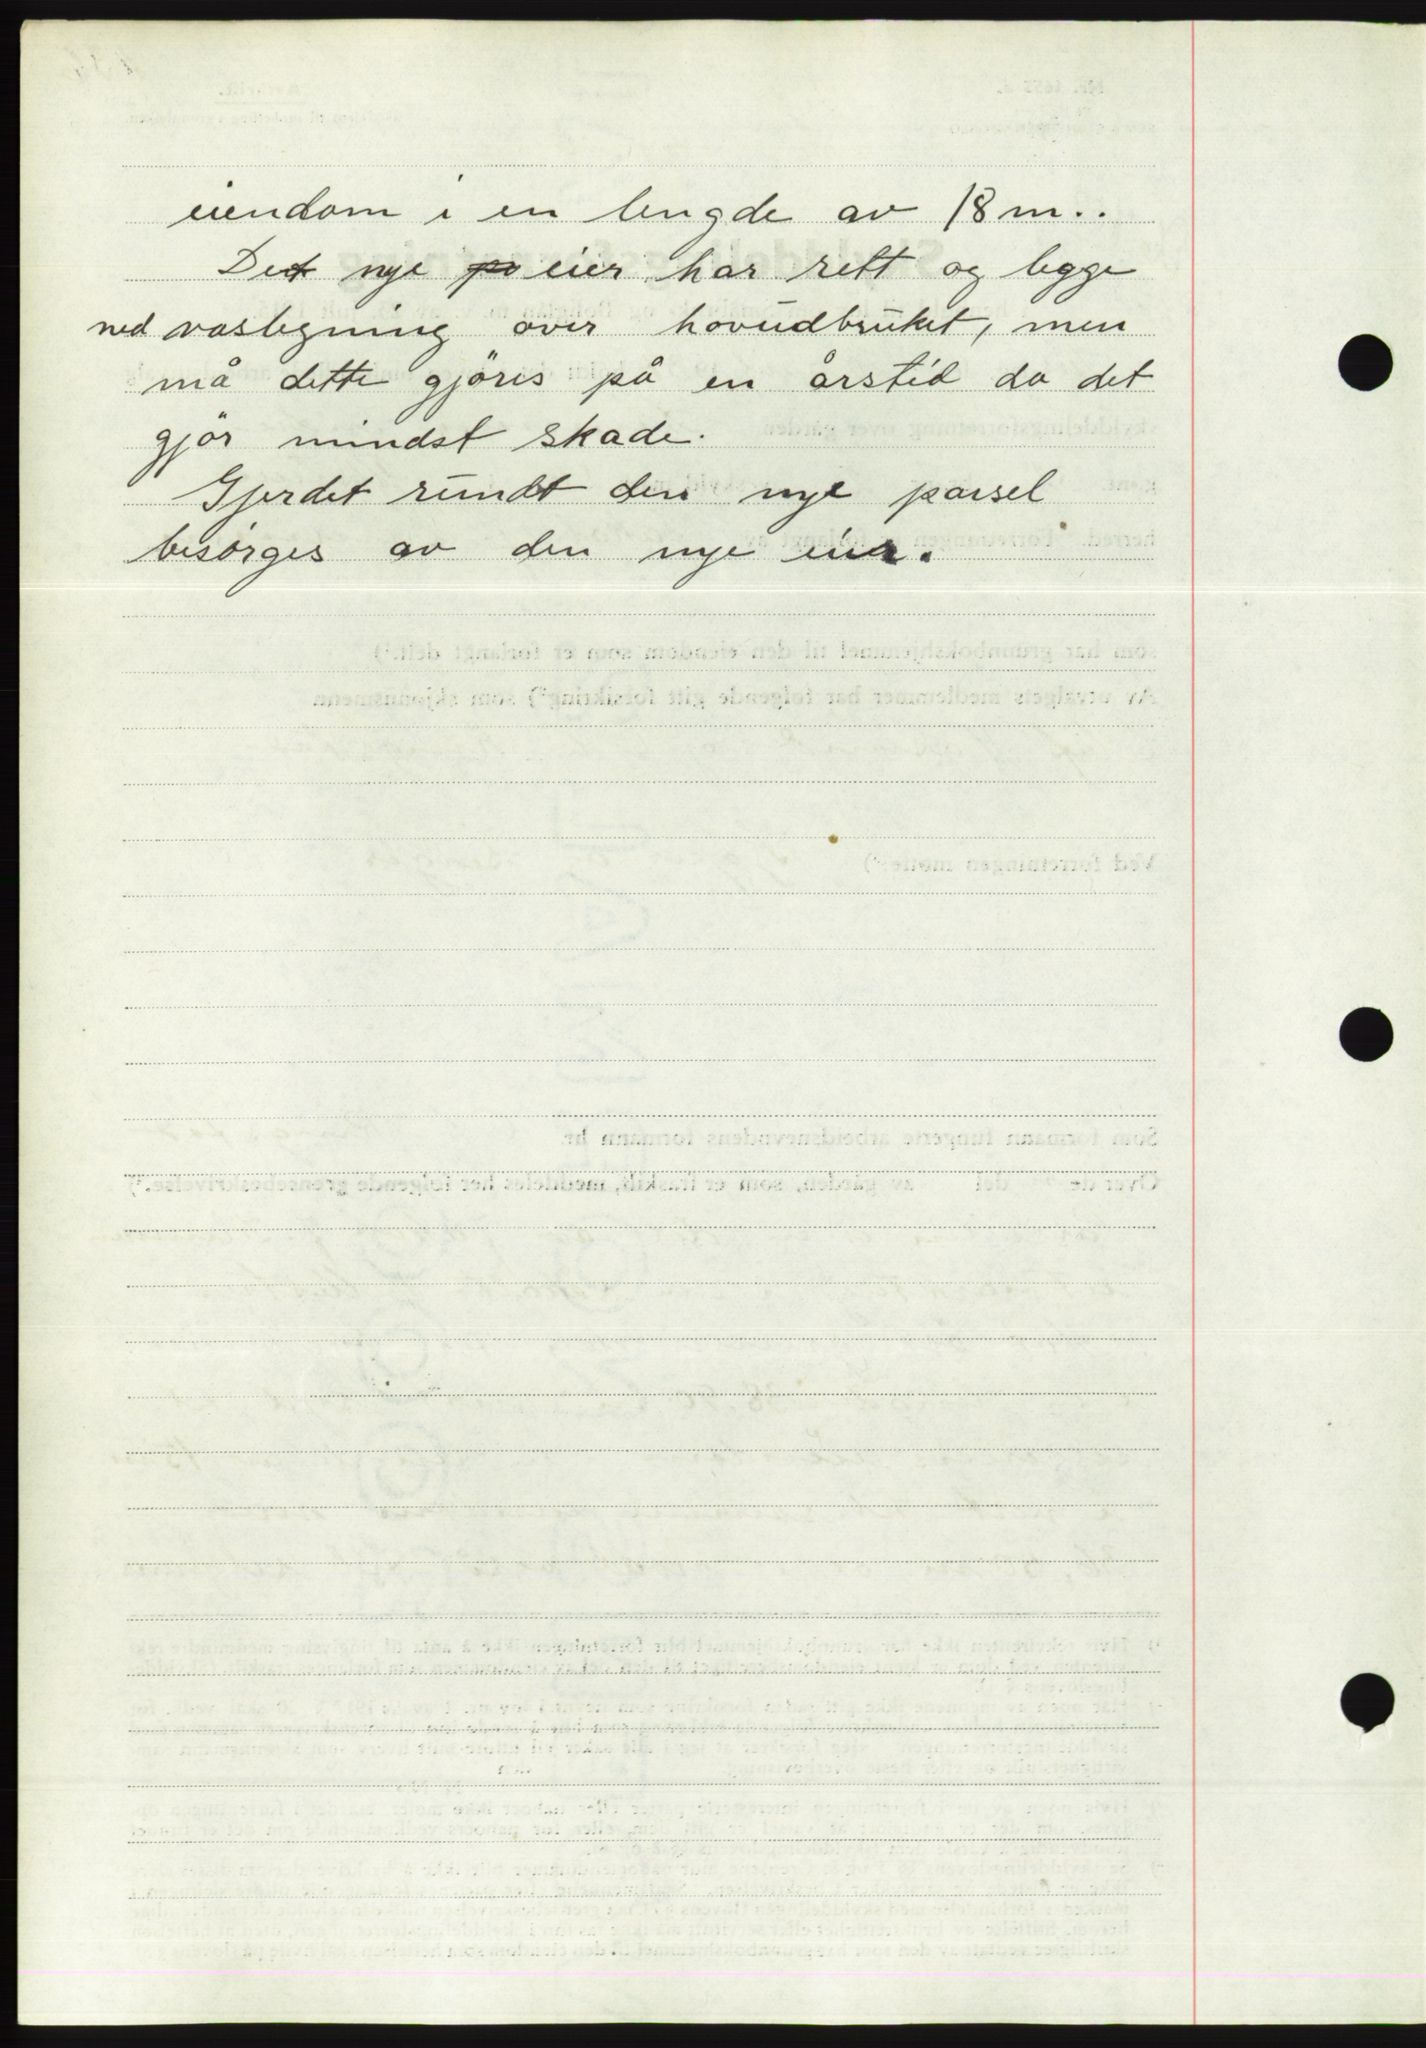 eiendom i en lengde av 18 m..
Det nye eier har rett og legge
ned vaslegning over hovudbruket, men
må dette gjöres på en årstid da det
gjör mindst skade.
Gjerdet rundt den nye parsel
besörges av den nye eier.